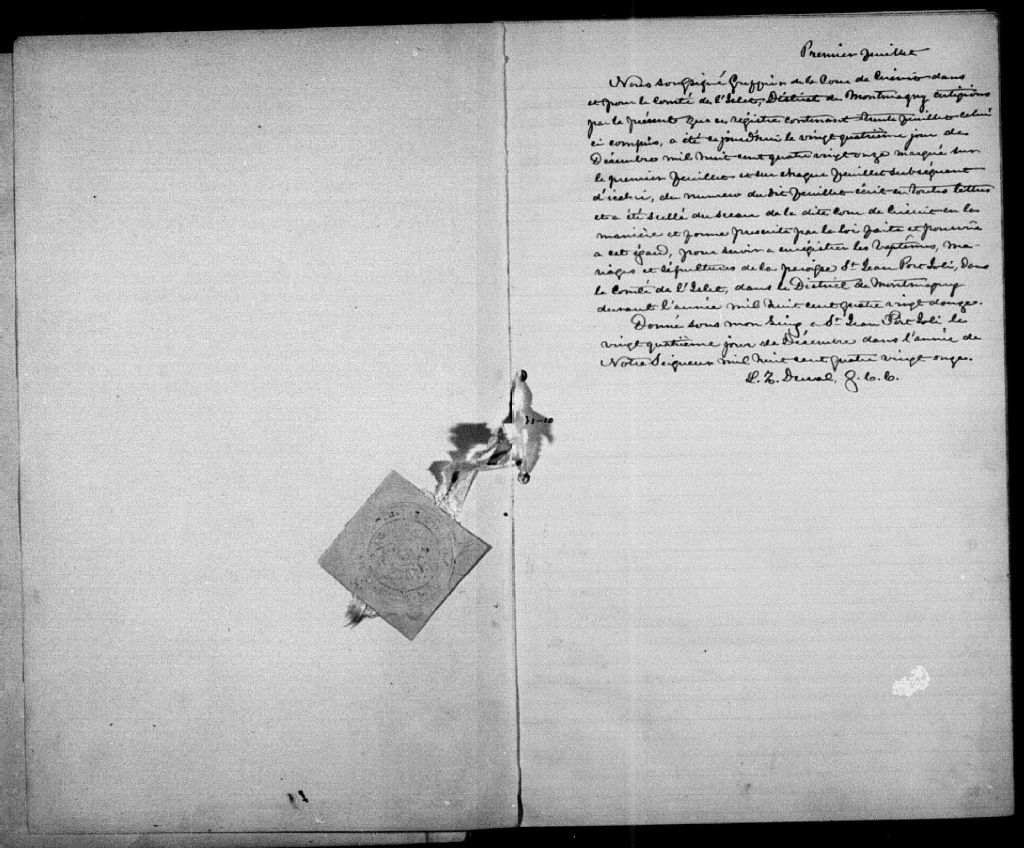 Premier feuillet
Nous soussigné Greffier de la Cour de Circuit dans
et pour le Comté de l'Islet, District de Montmagny certifions
par le présent que ce registre contenant trente feuillets celui
ci compris, a été ce jourd'hui le vingt quatrième jour de
Décembre mil huit cent quatre vingt onze marqué sur
le premier feuillet et sur chaque feuillet subséquent
d'icelui, du numero du dit feuillet écrit en toutes lettres
et a été scellé du sceau de la dite Cour de Circuit en la
manière et forme prescrite par la loi faite et pourvue
a cet égard, pour servir a enrégistrer les Baptêmes, ma-
riages et sépultures de la paroisse St Jean Port Joli, dans
le Comté de l'Islet, dans le District de Montmagny
durant l'année mil huit cent quatre vingt douze.
Donné sous mon seing a St Jean Port Joli le
vingt quatrième jour de Décembre dans l'année de
Notre Seigneur mil huit cent quatre vingt onze.
L. Z. Duval, G. C. C.